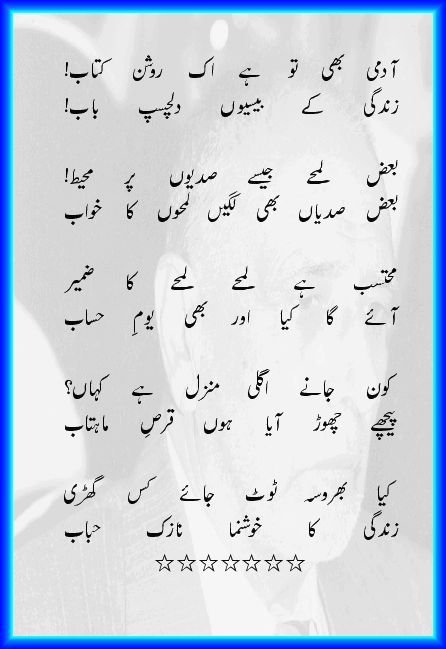 آدمی بھی تو ہے اک روشن کتاب!
زندگی کے بیسیوں دلچسپ باب!
بعض لمحے جیسے صدیوں پر محیط!
بعض صدیاں بھی لگیں لمحوں کا خواب
محتسب ہے لمحے لمحے کا ضمیر
آئے گا کیا اور بھی یومِ حساب
کون جانے اگلی منزل ہے کہاں؟
پیچھے چھوڑ آیا ہوں قرصِ ماہتاب
کیا بھروسہ ٹوٹ جائے کس گھڑی
زندگی کا خوشنما نازک حباب
☆☆☆☆☆☆☆